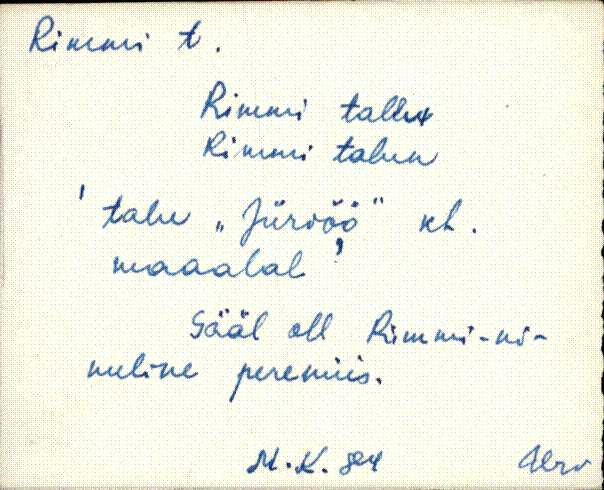 Rimmi t.
Rimmi tallu
Rimmi talun
' talu „Jürvöö" kh.
maaalal '
Sääl oll Rimmi-ni-
nuline peremiis.
M.K.